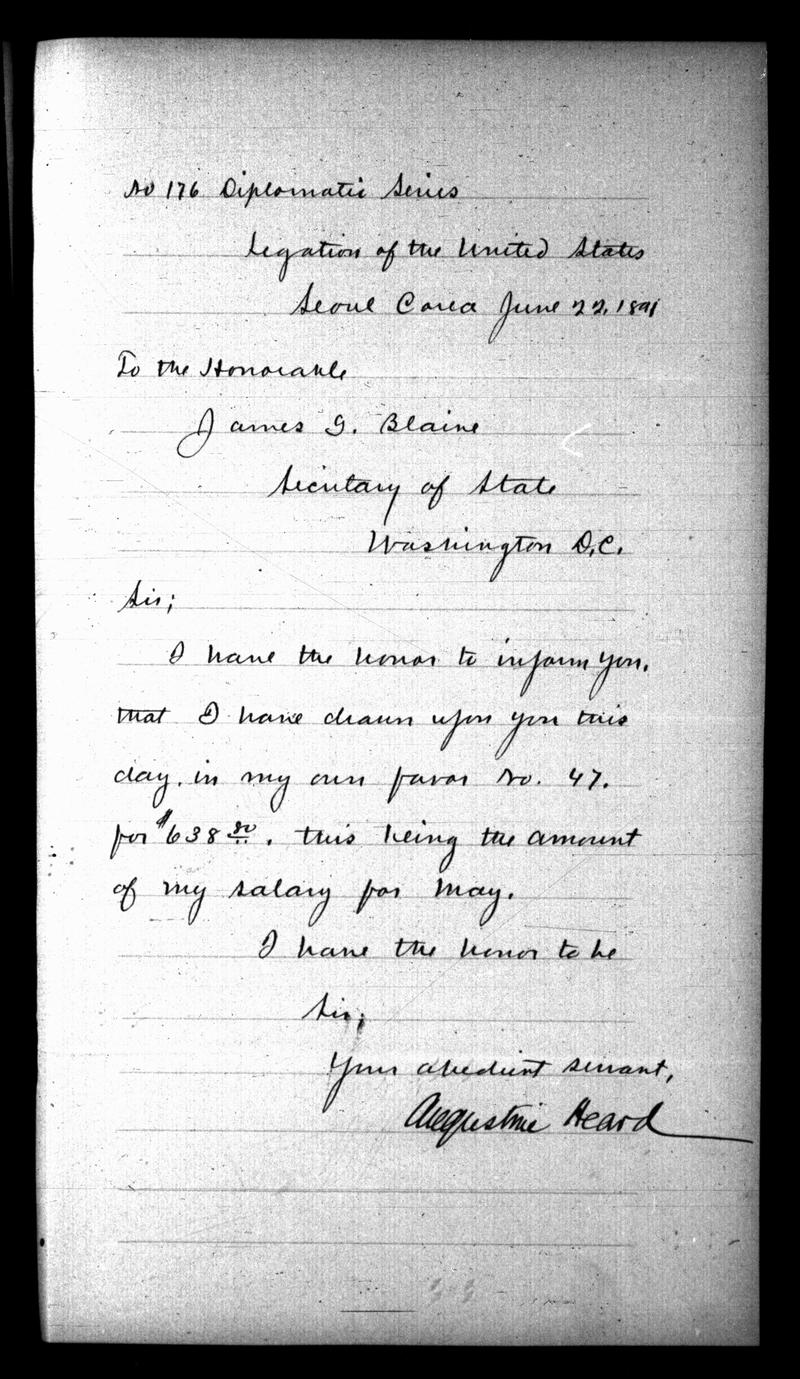 No 176 Diplomatic Series
Legation of the United States
Seoul Corea June 22, 1891
To the Honorable
James G. Blaine
Secretary of State
Washington D.C.
Sir;
I have the honor to inform you,
that I have drawn upon you this
day, in my own favor No. 47.
for $638 80. this being the amount
of my salary for May.
I have the honor to be
Sir;
Your obedient servant,
Augustine Heard